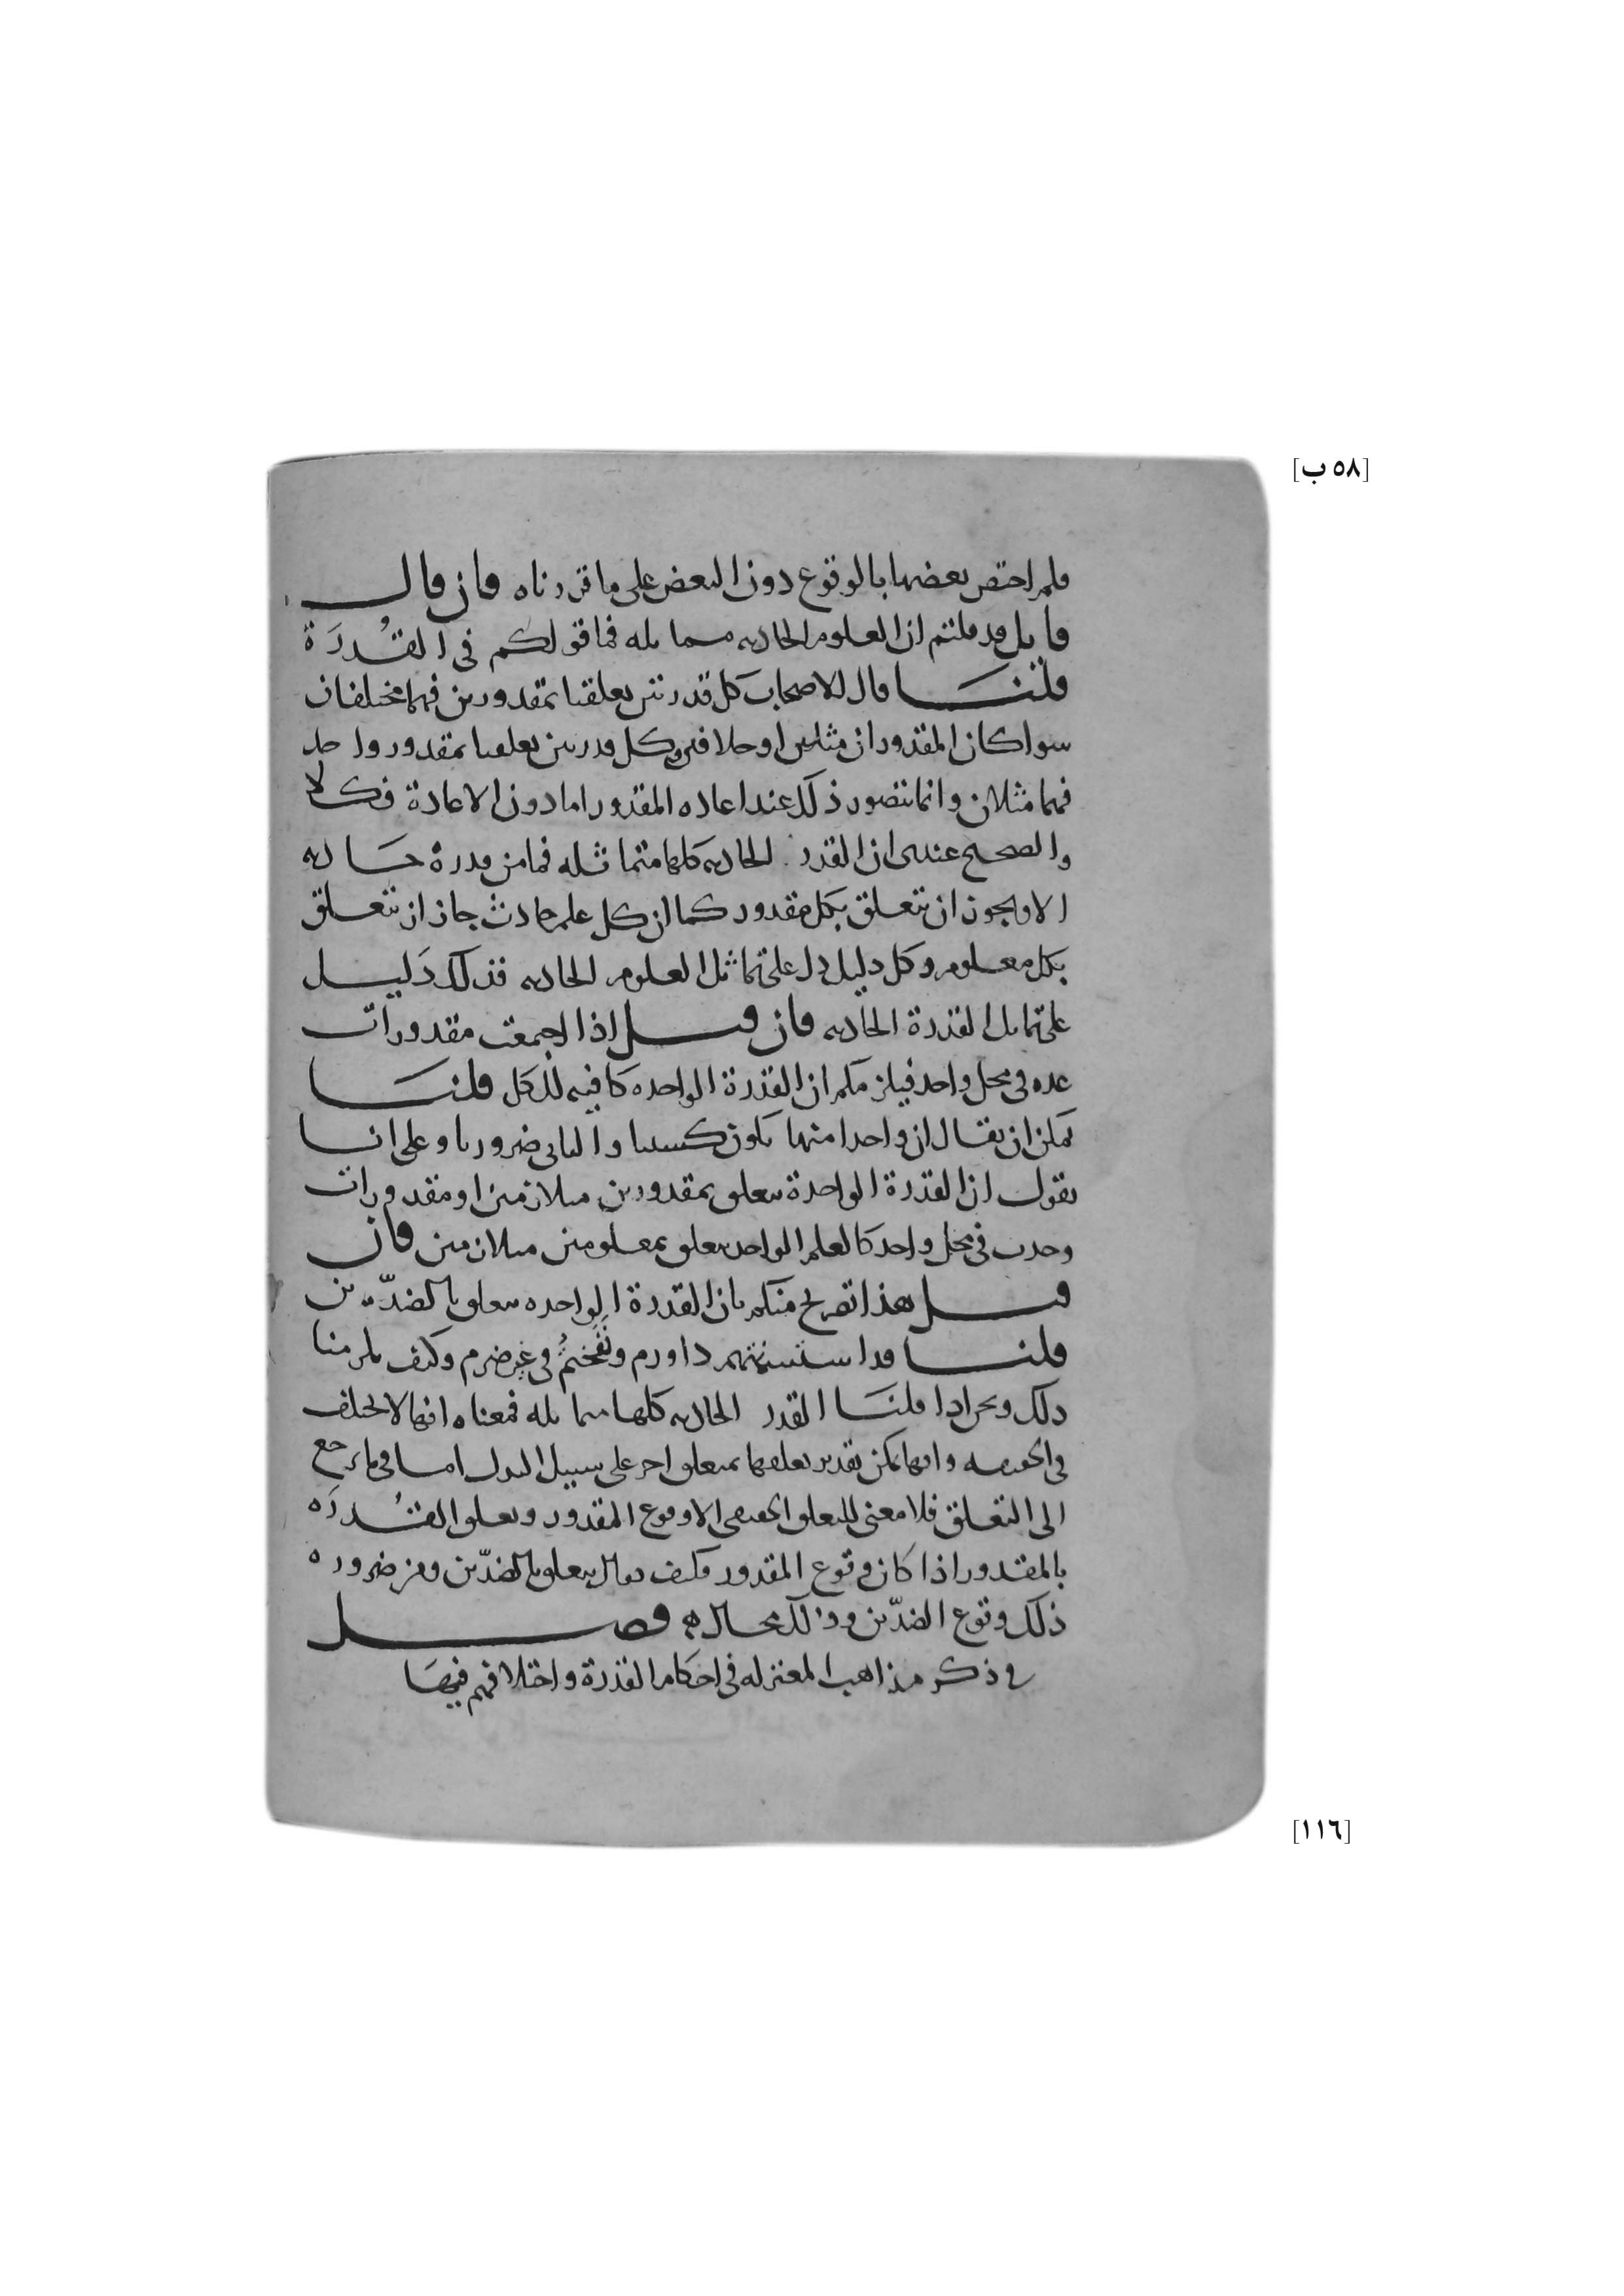 [٥٨ ب]
فلم اختص بعضها بالوقوع دون البعض على ما قررناه فان قال
قايل قد قلتم ان العلوم الحادثه متماثله فما قولكم في القُدرَة
قلنا قال الاصحاب كل قدرتين تعلقتا بمقدورين فهما مختلفان
سوا كان المقدوران مثلين او خلافين وكل قدرتين تعلقتا بمقدور واحد
فهما مثلان وانما يتصور ذلك عند اعاده المقدور اما دون الاعادة فكلا
والصحيح عندي ان القدر الحادثه كلها متماثله فما من قدرة حادثه
الا ويجوز ان تتعلق بكل مقدور كما ان كل علم حادث جاز ان يتعلق
بكل معلوم وكل دليل دل على تماثل العلوم الحادثه فذلك دَليل
على تماثل القدرة الحادثه فان قيل اذا اجتمعت مقدورات
عده في محل واحد فيلزمكم ان القدرة الواحده كافيه للكل قلنا
يمكن ان يقال ان واحدا منها يكون كسبيا والباقي ضروريا وعلى انا
نقول ان القدرة الواحدة تتعلق بمقدورين متلازمين او مقدورات
وجدت في محل واحد كالعلم الواحد يتعلق بمعلومين متلازمين فان
قيل هذا تصريح منكم بان القدرة الواحده تتعلق بالضدّين
قلنا قد استسمنتم ذا ورم ونَفَختُم في غير ضرم وكيف يلزمنا
ذلك ونحن اذا قلنا القدر الحادثه كلها متماثله فمعناه انها لا تختلف
في الحقيقه وانها يمكن تقدير تعلقها بمتعلق اخر على سبيل البدل اما فيما يرجع
الى التعلق فلا معنى للتعلق الحقيقي الا وقوع المقدور وتعلق القُدرَه
بالمقدور اذا كان وقوع المقدور فكيف يقال يتعلق بالضدّين ومن ضروره
ذلك وقوع الضدّين وذلك محال ه فصل
في ذكر مذاهب المعتزله في احكام القدرة واختلافهم فيها
[١١٦]